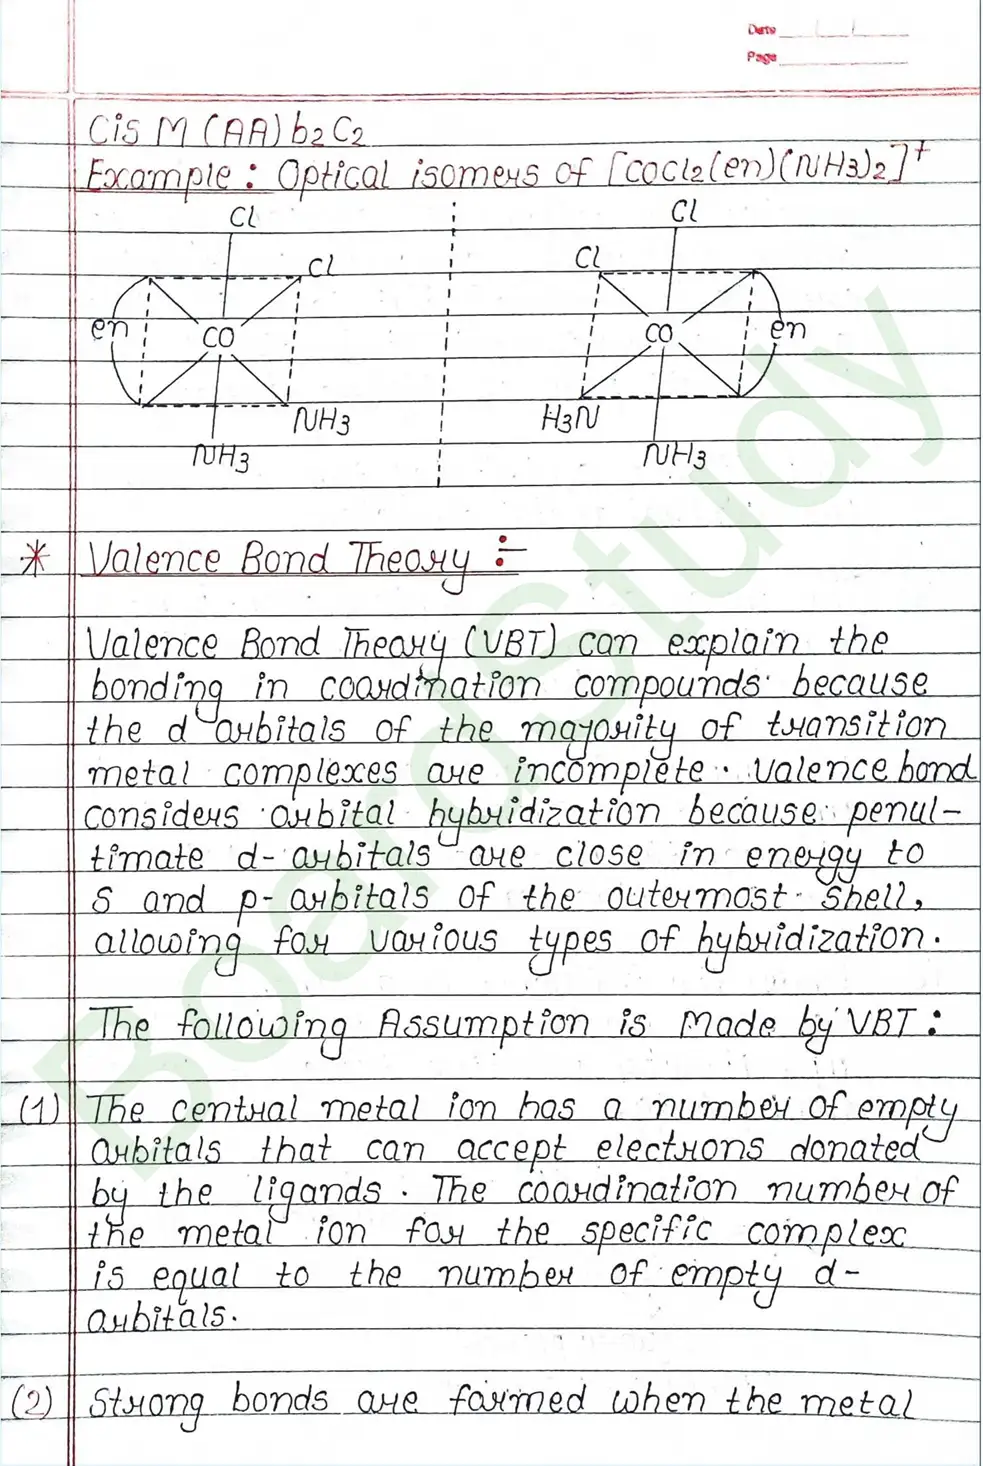 Date
Page
Cis M (AA) b2 C2
Example : Optical isomers of [COCl2(en)(NH3)2]+
Cl
Cl
Cl
Cl
en
CO
CO
en
NH3
H3N
NH3
NH3
* Valence Bond Theory :-
Valence Bond Theory (VBT) can explain the
bonding in coordination compounds because
the d orbitals of the majority of transition
metal complexes are incomplete. Valence bond
considers orbital hybridization because penul-
timate d- orbitals are close in energy to
S and p- orbitals of the outermost shell,
allowing for various types of hybridization.
The following Assumption is Made by VBT :
(1) The central metal ion has a number of empty
orbitals that can accept electrons donated
by the ligands. The coordination number of
the metal ion for the specific complex
is equal to the number of empty d-
orbitals.
(2) Strong bonds are formed when the metal
BoardStudy